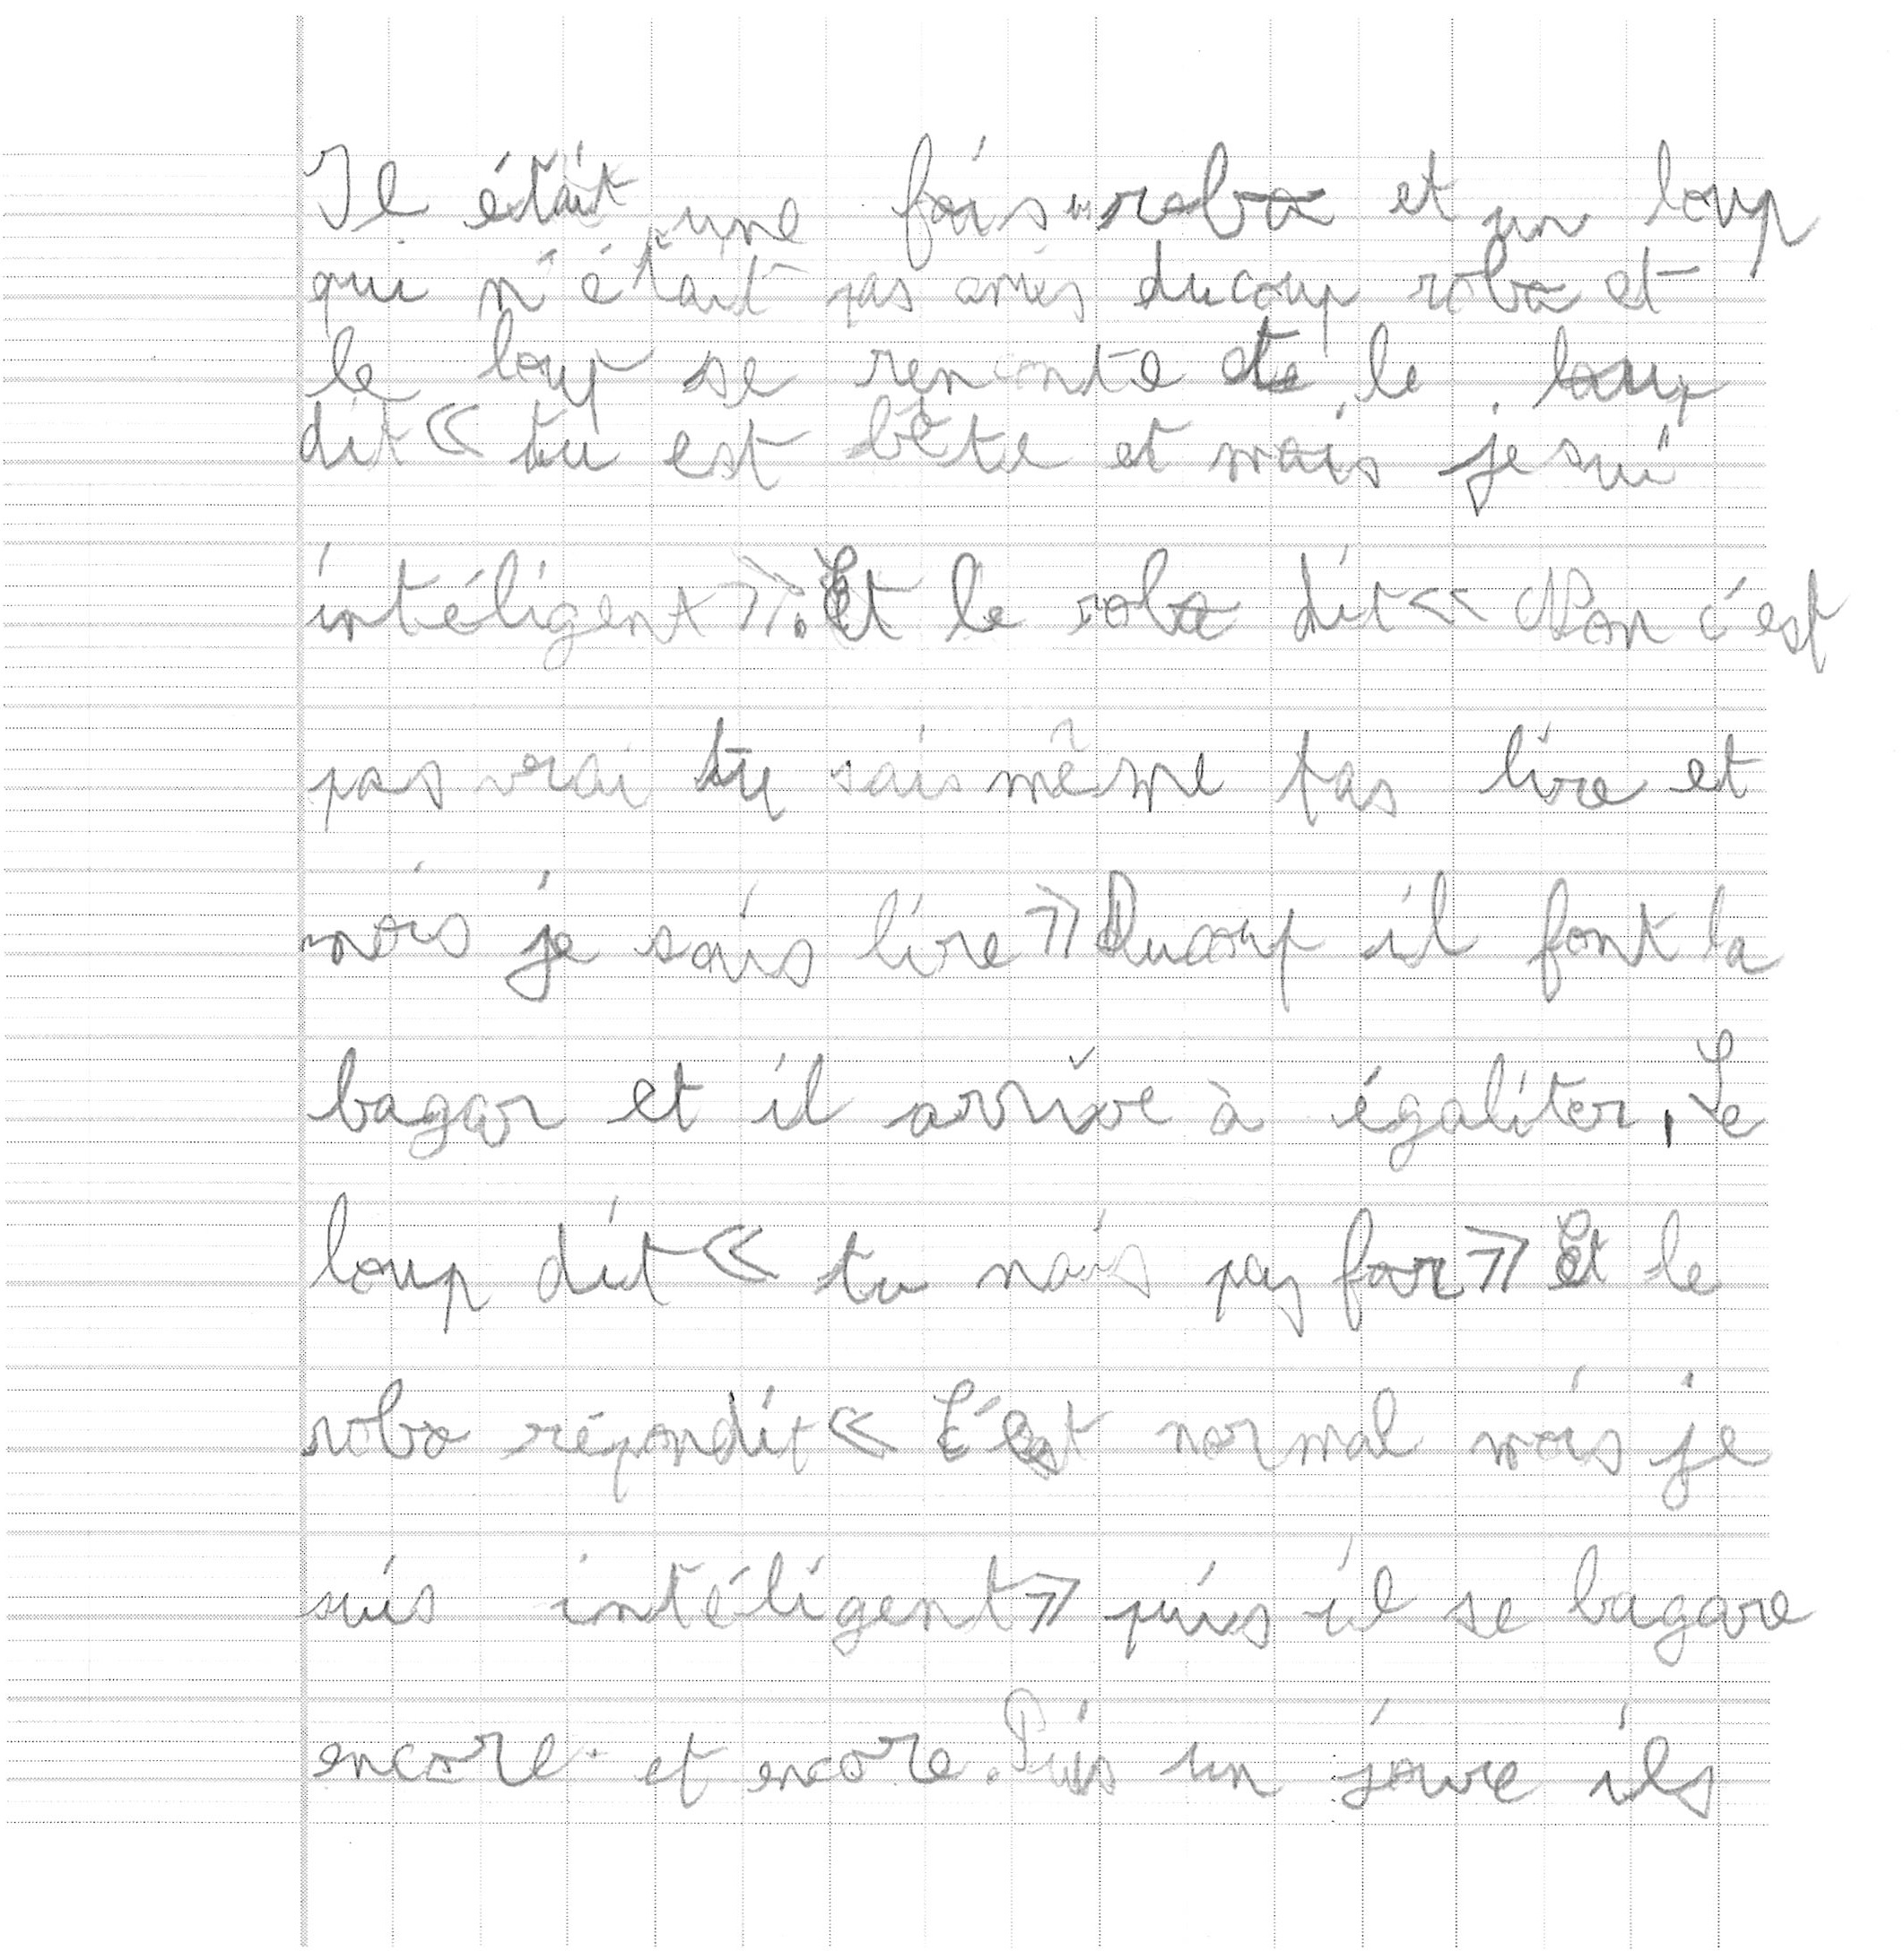 Il était une fois un robo et un loup
qui n'était pas amis ducoup robo et
le loup se renconte et le loup
dit « tu est bête et mois je sui
intéligent ». Et le robo dit « Non c'est
pas vrai tu sais même pas lire et
mois je sais lire » Ducoup il font la
bagar et il arrive à égaliter, Le
loup dit « tu nais pas for » Et le
robo répondit « C'est normal mois je
suis intéligent » puis il se bagare
encore et encore. Puis un joure ils